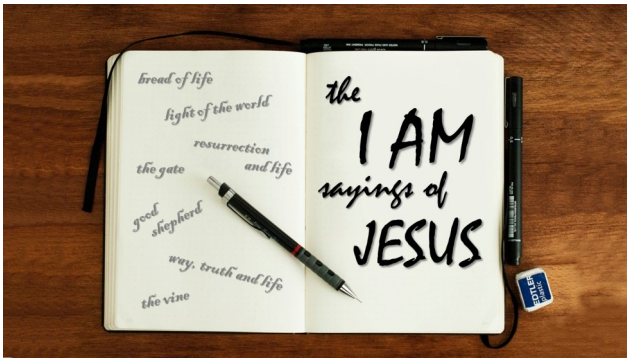 bread of life
light of the world
resurrection
and life
the gate
good
shepherd
way, truth and life
the vine
the
I AM
sayings of
JESUS
EDTLER
plastic